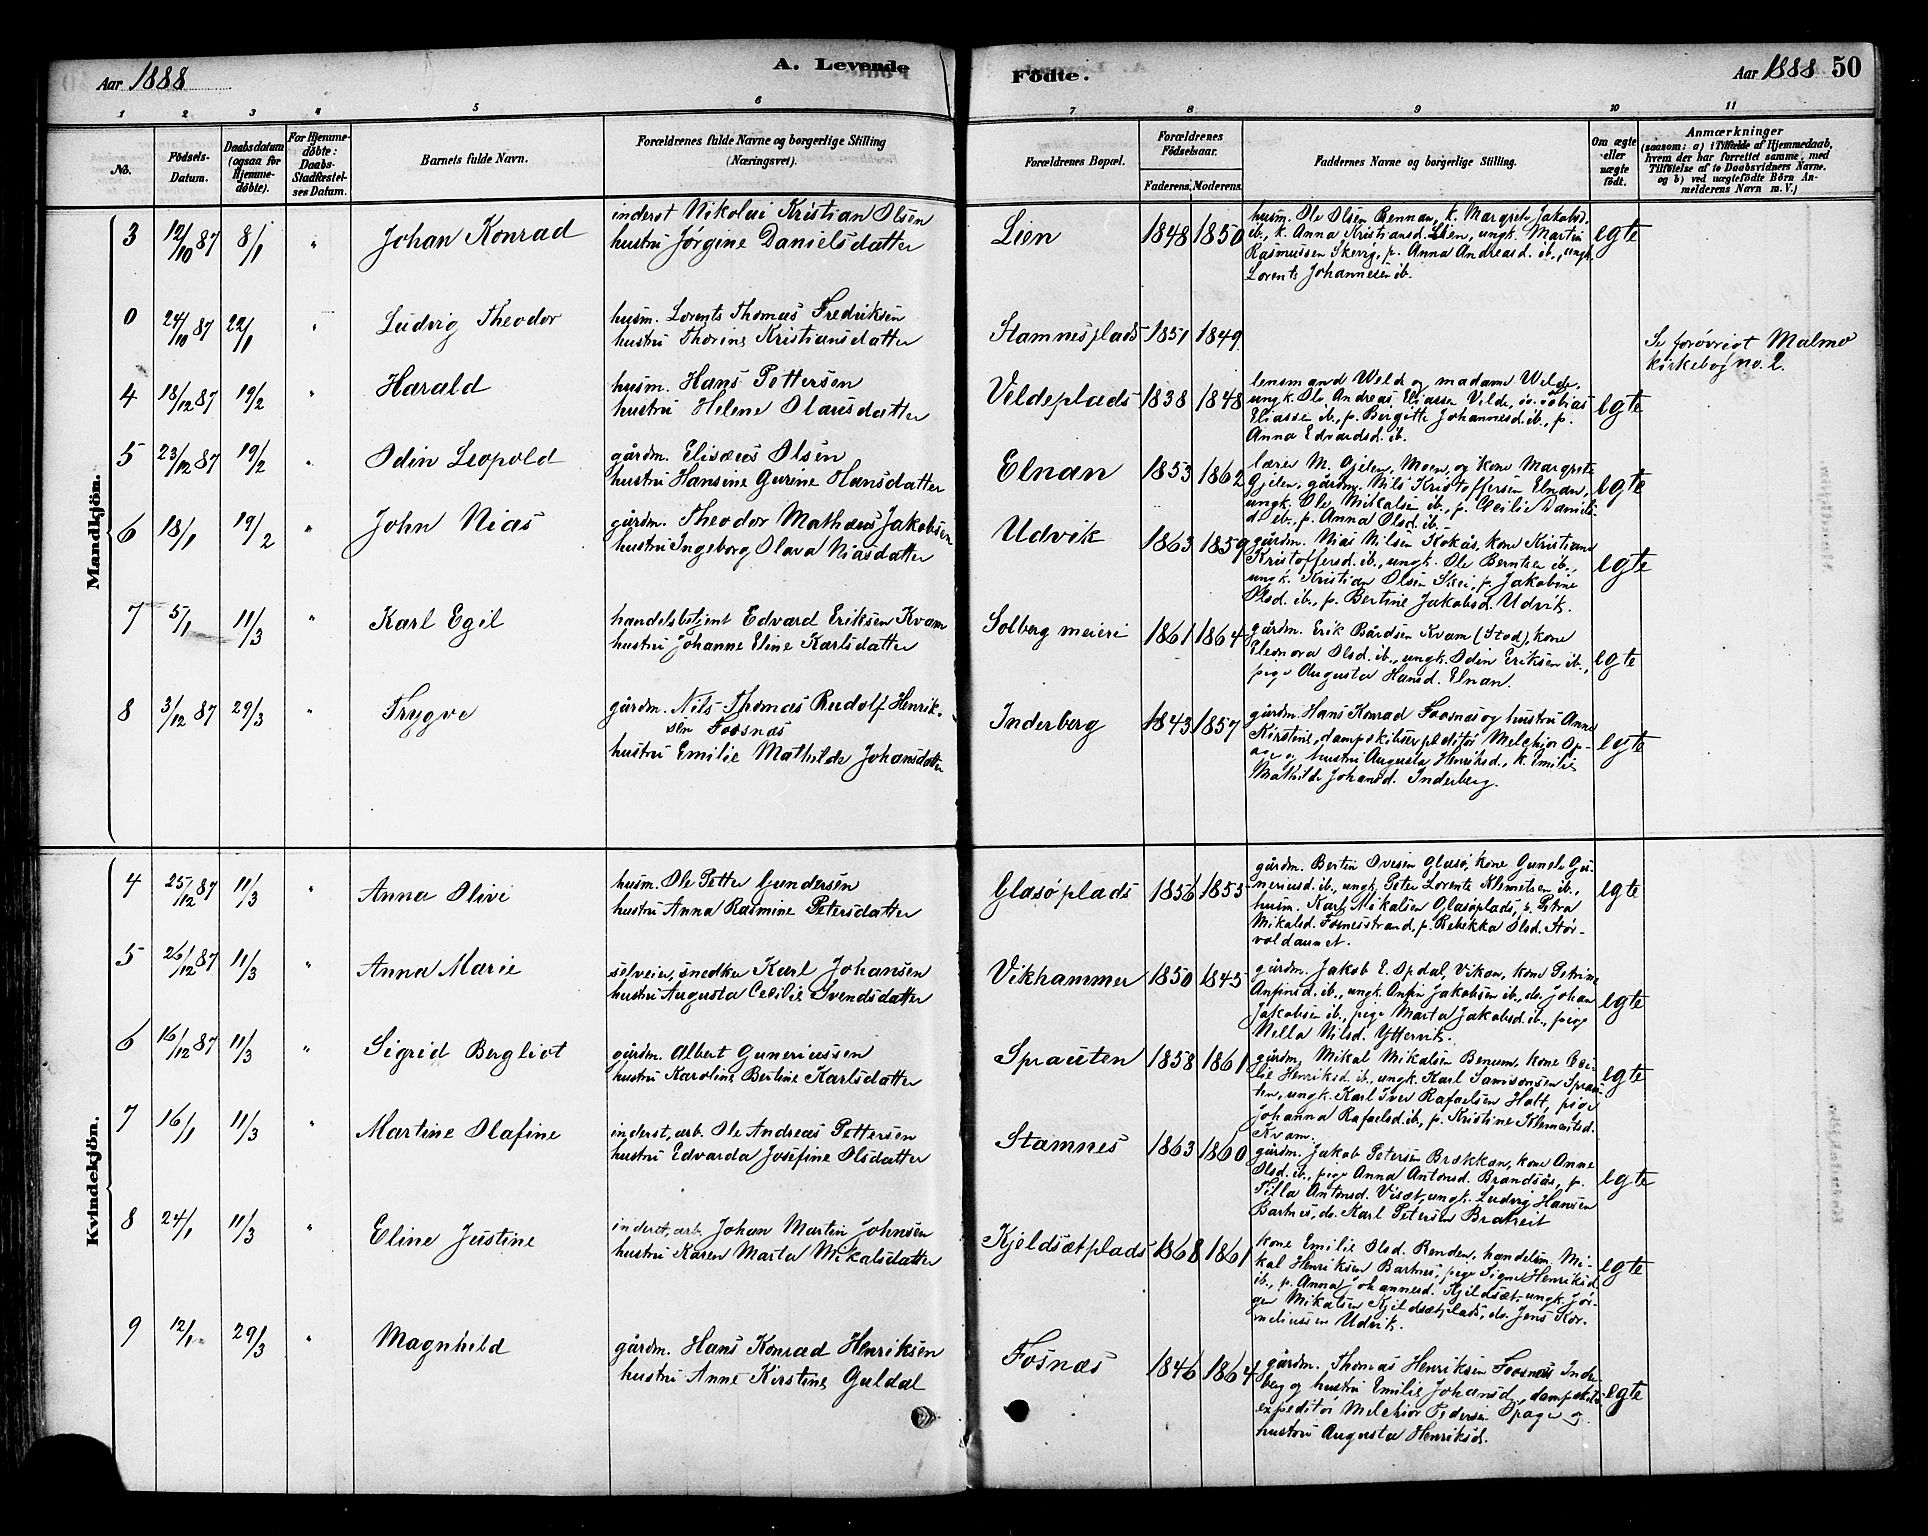 Aar 1888
A. Levende
Fødte.
Aar 1888 50
1 2 3 4 5 6 7 8 9 10 11
No.
Fødsels-
Datum.
Daabsdatum
(ogsaa for
Hjemme-
døbte).
For Hjemme-
døbte:
Daabs-
Stadfæstel-
ses Datum.
Barnets fulde Navn.
Forældrenes fulde Navne og borgerlige Stilling
(Næringsvei).
Forældrenes Bopæl.
Forældrenes
Fødselsaar.
Faderens. Moderens.
Faddernes Navne og borgerlige Stilling.
Om ægte
eller
uægte
født.
Anmærkninger
(saasom: a) i Tilfælde af Hjemmedaab,
hvem der har forrettet samme, med
Tilføielse af to Daabsvidners Navne.
og b) ved uægtefødte Børn An-
melderens Navn m. V.)
Mandkjön.
3 12/10 87 8/1 " Johan Konrad
inderst Nikolai Kristian Olsen
hustru Jørgine Danielsdatter
Lien 1848 1850
husm. Ole Olsen Rennan, k. Margrete Jakobsd.
ib., k. Anna Kristiansd. Lien, ungk. Martin
Rasmussen Skevig, p. Anna Andreasd. ib., ungk.
Lorents Johannesen ib.
egte
0 24/10 87 22/1 " Ludvig Theodor
husm. Lorents Thomas Fredriksen
hustru Thorine Kristiansdatter
Stamnesplads 1851 1849
Se forøvrigt Malmo
kirkebog no. 2.
4 18/12 87 19/2 " Harald
husm. Hans Pettersen
hustru Helene Olausdatter
Veldeplads 1838 1848
lensmand Welde og madame Welde,
ungk. Ole Andreas Eliassen Velde, do. Tobias
Eliassen ib., p. Bergitte Johannesd. ib., p.
Anna Edvardsd. ib.
egte
5 23/12 87 19/2 " Odin Leopold
gårdm. Elisæus Olsen
hustru Hansine Gurine Hansdatter
Elnan 1853 1862
lærer M. Gjelen, Moen, og kone Margrete
Gjelen, gårdm. Nils Kristoffersen Elnan,
ungk. Ole Mikalsen ib., p. Cecilie Daniels-
d. ib., p. Anna Olsd. ib.
egte
6 18/1 19/2 " John Nias
gårdm. Theodor Mathæus Jakobsen
hustru Ingeborg Olava Niasdatter
Udvik 1863 1859
gårdm. Nias Nilsen Kokås, kone Kristiane
Kristoffersd. ib., ungk. Ole Berntsen ib.,
ungk. Kristian Olsen Skei, p. Jakobine
Olsd. ib., p. Bertine Jakobsd. Udvik.
egte
7 5/1 11/3 " Karl Egil
handelsbetjent Edvard Eriksen Kvam
hustru Johanne Eline Karlsdatter
Solberg meieri 1861 1864
gårdm. Erik Bårdsen Kvam (Stod), kone
Eleonora Olsd. ib., ungk. Odin Eriksen ib.,
pige Augusta Hansd. Elnan.
egte
8 3/12 87 29/3 " Trygve
gårdm. Nils Thomas Rudolf Henrik-
sen Fosnæs
hustru Emilie Mathilde Johansdatter
Inderberg 1843 1857
gårdm. Hans Konrad Fosnæs og hustru Anne
Kirstine, dampskibsexpeditør Melchior Op-
age og hustru Augusta Henriksd., k. Emilie
Mathilde Johansd. Inderberg.
egte
Kvindekjön.
4 25/12 87 11/3 " Anna Olive
husm. Ole Petter Gundersen
hustru Anna Rasmine Petersdatter
Glasøplads 1856 1855
gårdm. Bertin Ovesen Glasø, kone Gunele Gu-
neriusd. ib., ungk. Peter Lorents Klemetsen ib.,
husm. Karl Mikalsen Glasøplads, p. Petra
Mikalsd. Fosnesstrand, p. Rebekka Olsd. Stor-
voldaunet.
egte
5 26/12 87 11/3 " Anna Marie
selveier, snedker Karl Johansen
hustru Augusta Cecilie Svendsdatter
Vikhammer 1850 1845
gårdm. Jakob E. Opdal, Vikan, kone Petrine
Anfinsd. ib., ungk. Anfin Jakobsen ib., do. Johan
Jakobsen ib., pige Marta Jakobsd. ib., pige
Nella Nilsd. Yttervik.
egte
6 16/12 87 11/3 " Sigrid Bergliot
gårdm. Albert Guneriussen
hustru Karoline Bertine Karlsdatter
Sprauten 1858 1861
gårdm. Mikal Mikalsen Benum, kone Ceci-
lie Henriksd. ib., ungk. Karl Samsonsen Sprau-
ten, ungk. Karl Iver Rafaelsen Hatt, pige
Johanna Rafaelsd. ib., p. Kristine Klemetsd.
Kvam.
egte
7 16/1 11/3 " Martine Olafine
inderst, arb. Ole Andreas Pettersen
hustru Edvarda Josefine Olsdatter
Stamnes 1863 1860
gårdm. Jakob Petersen Brækkan, kone Anne
Olsd. ib., pige Anna Antonsd. Brandsås, p.
Tilla Antonsd. Viset, ungk. Ludvig Hansen
Bartnes, do. Karl Petersen Bratreit
egte
8 24/1 11/3 " Eline Justine
inderst, arb. Johan Martin Johnsen
hustru Karen Marta Mikalsdatter
Kjeldsætplads 1868 1861
kone Emilie Olsd. Renden, handelsm. Mi-
kal Henriksen Bartnes, pige Signe Henriksd.
ib., p. Anna Johannesd. Kjeldsæt, ungk. Jør-
gen Mikalsen Kjeldsætplads, do. Jens Kor-
neliussen Udvik.
egte
9 12/1 29/3 " Magnhild
gårdm. Hans Konrad Henriksen
hustru Anne Kirstine Guldal
Fosnæs 1846 1864
gårdm. Thomas Henriksen Fosnæs Inder-
berg og hustru Emilie Johansd., dampskibs-
expeditør Melchior Pedersen Opage og
hustru Augusta Henriksd.
egte